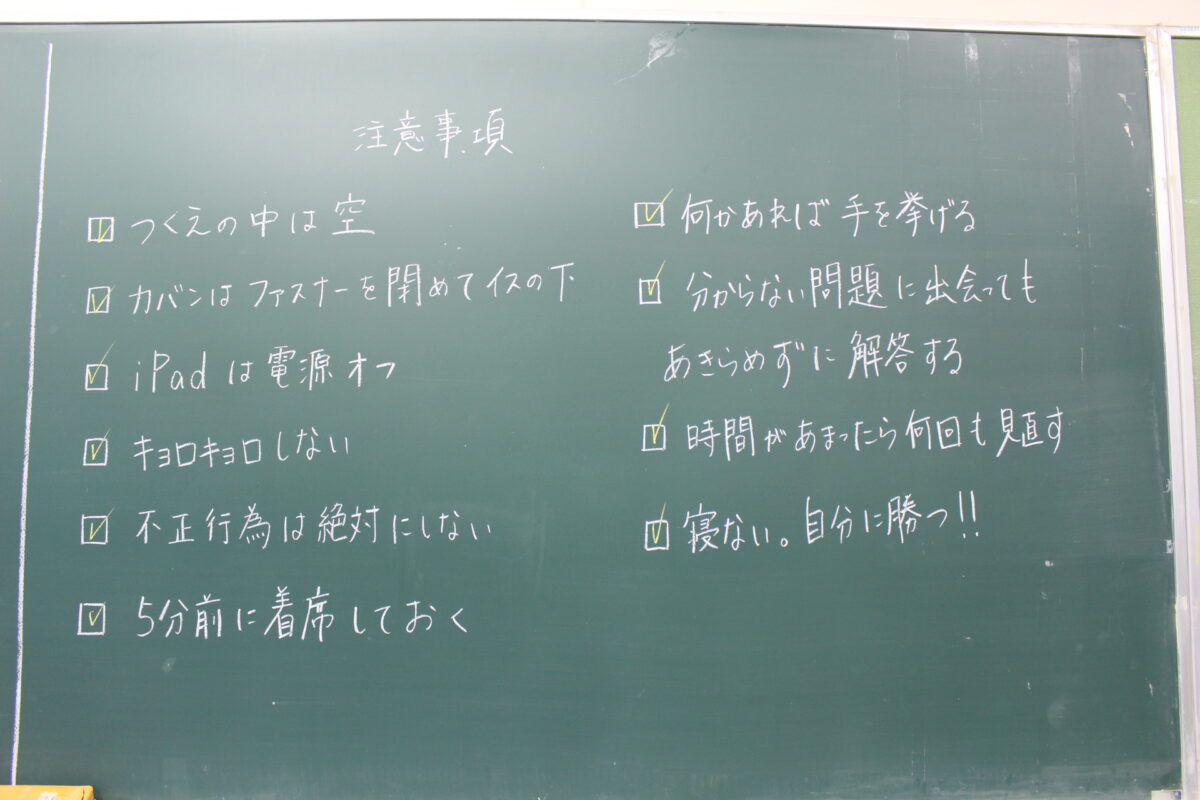 注意事項
☑ つくえの中は空
☑ カバンはファスナーを閉めてイスの下
☑ iPadは電源オフ
☑ キョロキョロしない
☑ 不正行為は絶対にしない
☑ 5分前に着席しておく
☑ 何かあれば手を挙げる
☑ 分からない問題に出会っても
あきらめずに解答する
☑ 時間があまったら何回も見直す
☑ 寝ない。自分に勝つ!!